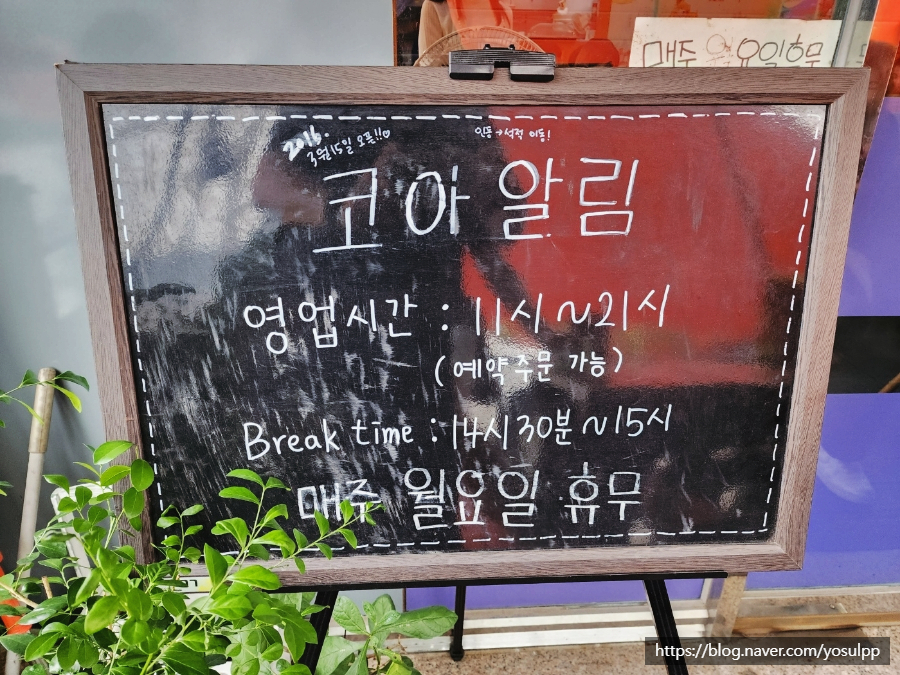 매주 요일휴무
2016.
3월15일 오픈!!♡
인동→석적 이동!
코아 알림
영업시간 : 11시~21시
(예약주문 가능)
Break time : 14시30분~15시
매주 월요일 휴무
https://blog.naver.com/yosulpp